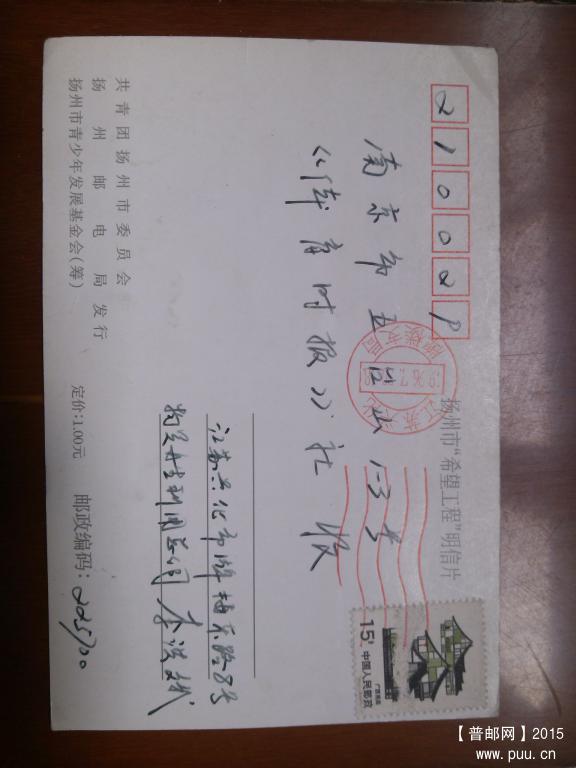 210029
南京市五台山1-3号
《体育时报》社 收
扬州市“希望工程”明信片
15分
中国人民邮政
江苏兴化市牌楼东路8号
物资再生利用公司 李
共青团扬州市委员会
扬州邮电局发行
扬州市青少年发展基金会(筹)
定价:1.00元
邮政编码:225700
【普邮网】2015
www.puu.cn